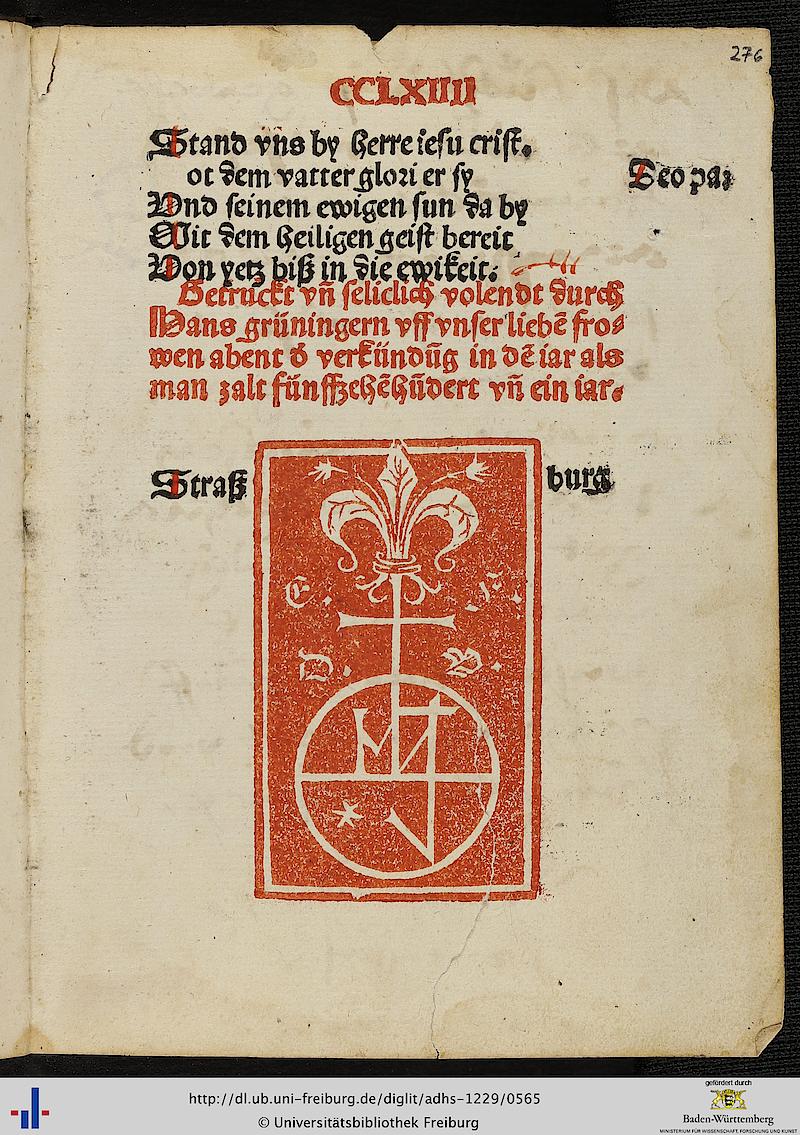 276
CCLXIIII
Stand vns by herre iesu crist.
ot dem vatter glori er sy
Deo pa
Vnd seinem ewigen sun da by
Mit dem heiligen geist bereit
Von yetz biß in die ewikeit.
Getruckt vñ seliclich volendt durch
Hans grüningern vff vnser liebẽ fro⸗
wen abent d᷑ verkündũg in dẽ iar als
man zalt fünffzehẽhũdert vñ ein iar.
Straß burg
E. F.
V. B.
http://dl.ub.uni-freiburg.de/diglit/adhs-1229/0565
© Universitätsbibliothek Freiburg
gefördert durch
Baden-Württemberg
MINISTERIUM FÜR WISSENSCHAFT, FORSCHUNG UND KUNST